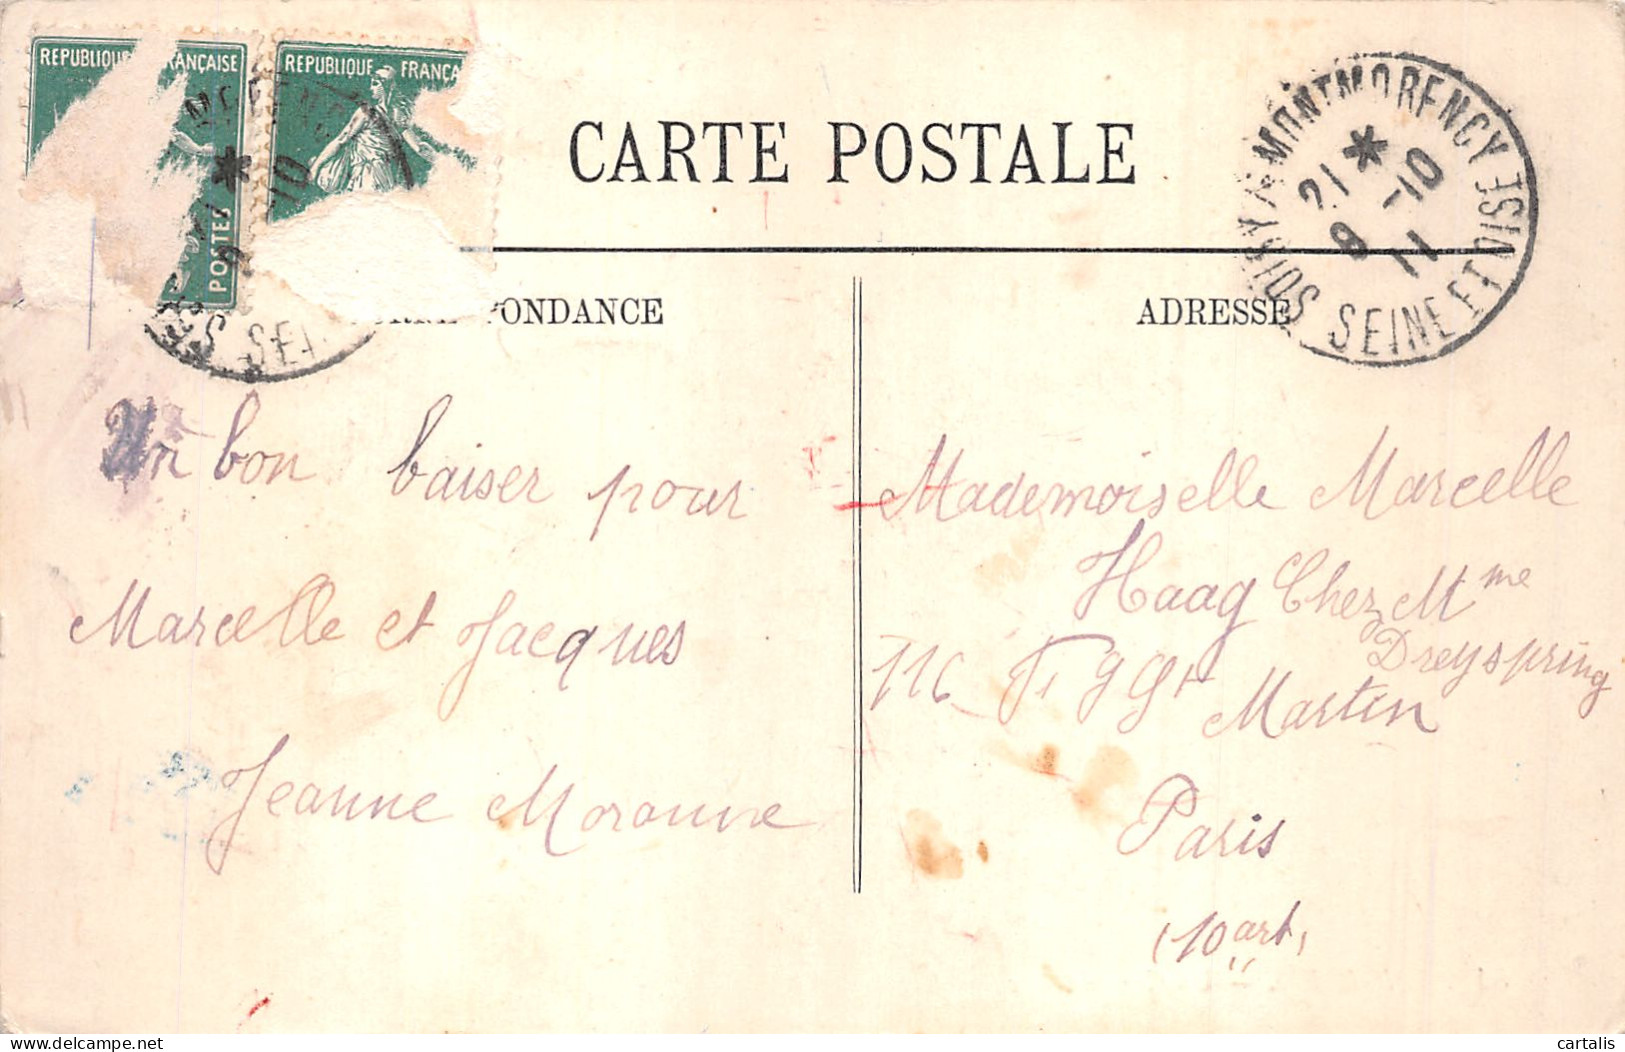 REPUBLIQUE FRANÇAISE
POSTES
REPUBLIQUE FRANÇA
CARTE POSTALE
SOISY-s-MONTMORENCY
21 * -10
9 11
SEINE ET OISE
PONDANCE
ADRESSE
Un bon baiser pour
Marcelle et Jacques
Jeanne Moranne
Mademoiselle Marcelle
Haag Chez Mme
Dreyspring
116 St
Martin
Paris
(10 art)
cartalis
delcampe.net